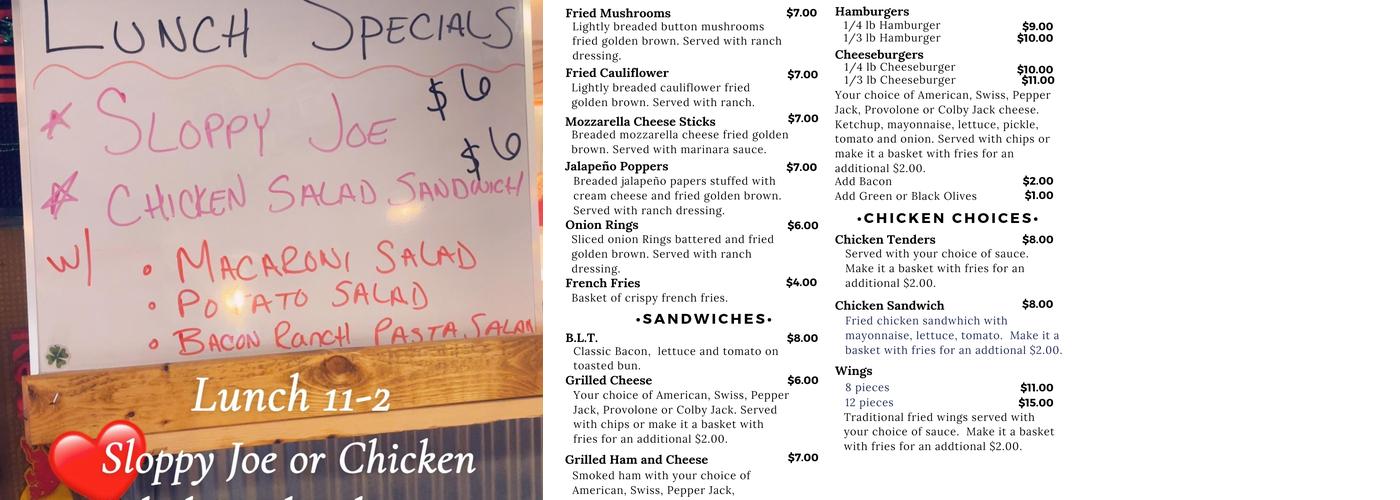 LUNCH SPECIALS
$6
SLOPPY JOE
$6
CHICKEN SALAD SANDWICH
W/ • MACARONI SALAD
• POTATO SALAD
• BACON RANCH PASTA SALAD
Lunch 11-2
Sloppy Joe or Chicken
Fried Mushrooms $7.00
Lightly breaded button mushrooms
fried golden brown. Served with ranch
dressing.
Fried Cauliflower $7.00
Lightly breaded cauliflower fried
golden brown. Served with ranch.
Mozzarella Cheese Sticks $7.00
Breaded mozzarella cheese fried golden
brown. Served with marinara sauce.
Jalapeño Poppers $7.00
Breaded jalapeño papers stuffed with
cream cheese and fried golden brown.
Served with ranch dressing.
Onion Rings $6.00
Sliced onion Rings battered and fried
golden brown. Served with ranch
dressing.
French Fries $4.00
Basket of crispy french fries.
•SANDWICHES•
B.L.T. $8.00
Classic Bacon, lettuce and tomato on
toasted bun.
Grilled Cheese $6.00
Your choice of American, Swiss, Pepper
Jack, Provolone or Colby Jack. Served
with chips or make it a basket with
fries for an additional $2.00.
Grilled Ham and Cheese $7.00
Smoked ham with your choice of
American, Swiss, Pepper Jack,
Hamburgers
1/4 lb Hamburger $9.00
1/3 lb Hamburger $10.00
Cheeseburgers
1/4 lb Cheeseburger $10.00
1/3 lb Cheeseburger $11.00
Your choice of American, Swiss, Pepper
Jack, Provolone or Colby Jack cheese.
Ketchup, mayonnaise, lettuce, pickle,
tomato and onion. Served with chips or
make it a basket with fries for an
additional $2.00.
Add Bacon $2.00
Add Green or Black Olives $1.00
•CHICKEN CHOICES•
Chicken Tenders $8.00
Served with your choice of sauce.
Make it a basket with fries for an
additional $2.00.
Chicken Sandwich $8.00
Fried chicken sandwhich with
mayonnaise, lettuce, tomato. Make it a
basket with fries for an addtional $2.00.
Wings
8 pieces $11.00
12 pieces $15.00
Traditional fried wings served with
your choice of sauce. Make it a basket
with fries for an additional $2.00.